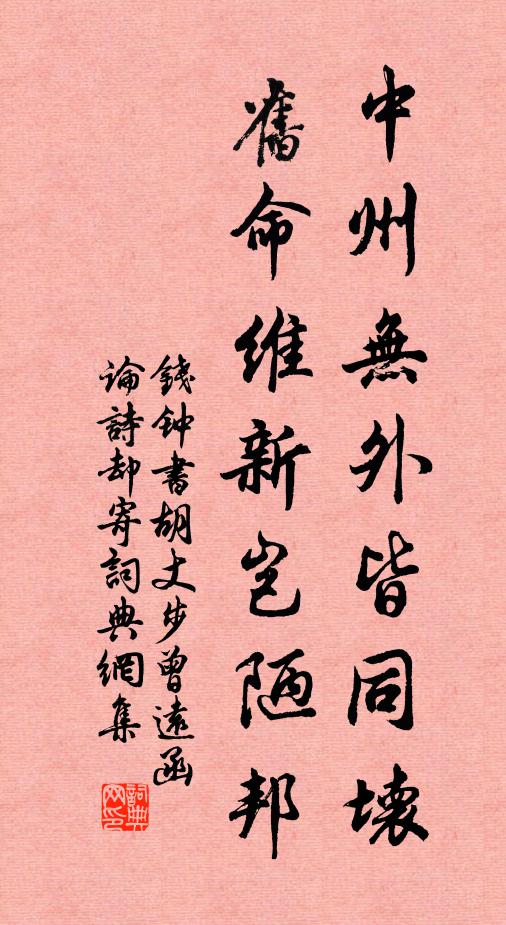 中州無外皆同壤
舊命維新豈陋邦
錢钟書胡丈步曾遠函
論詩却寄詞典網集
詞典网印